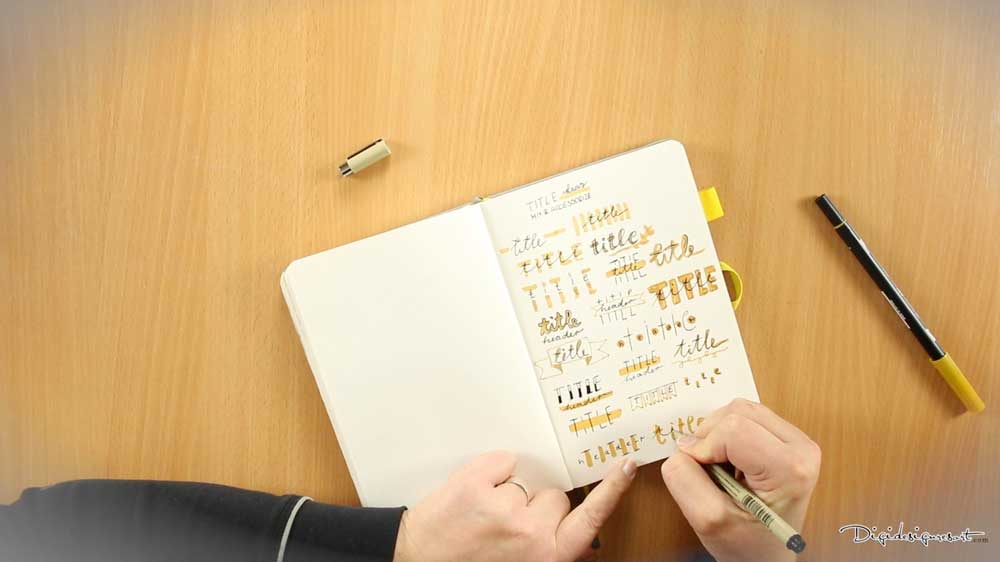 TITLE ideas
MIX & ACCESSORIZE
title
title
title
title
title
TITLE
title
TITLE
title
header
TITLE
title
title
header
title
title
TITLE
header
title
TITLE
header
TITLE
title
TITLE
header
title
Digidesignresort.com